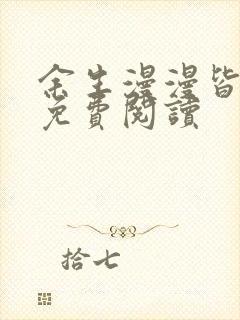 余生漫漫皆
免費閱讀
拾七